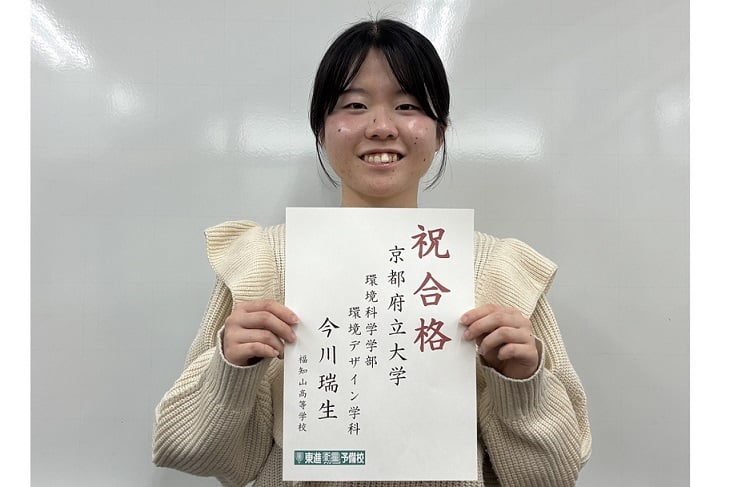 祝合格
京都府立大学
環境科学学部
環境デザイン学科
今川瑞生
福知山高等学校
東進
予備校